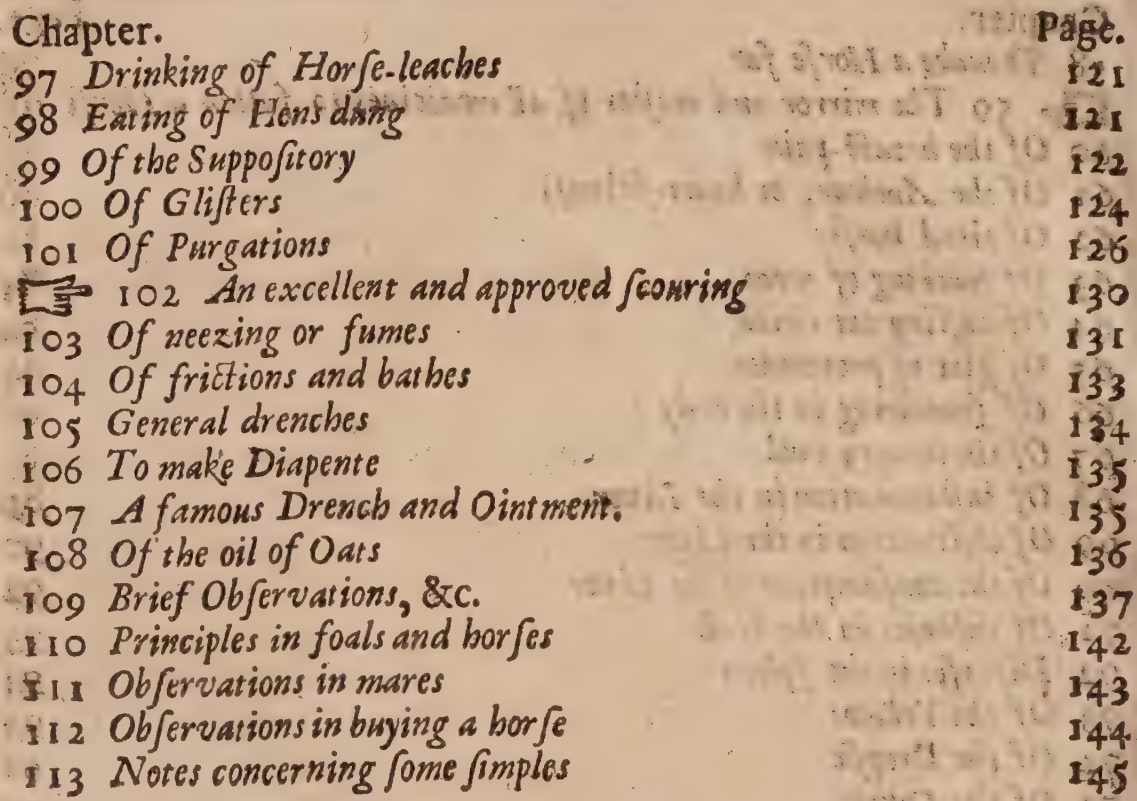 Chapter. Page.
97 Drinking of Horſe-leaches 121
98 Eating of Hens dung 121
99 Of the Suppoſitory 122
100 Of Gliſters 124
101 Of Purgations 126
☞ 102 An excellent and approved ſcouring 130
103 Of neezing or fumes 131
104 Of frictions and bathes 133
105 General drenches 134
106 To make Diapente 135
107 A famous Drench and Ointment. 135
108 Of the oil of Oats 136
109 Brief Obſervations, &c. 137
110 Principles in foals and horſes 142
111 Obſervations in mares 143
112 Obſervations in buying a horſe 144
113 Notes concerning ſome ſimples 145